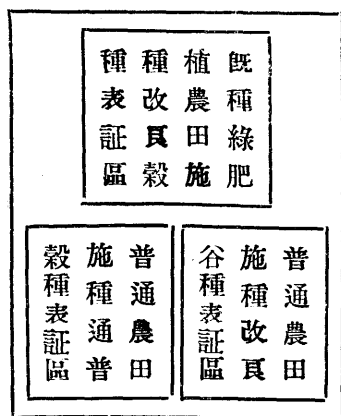 既種綠肥
植農田施
種改良穀
種表証區
普通農田
施種改良
谷種表証區
普通農田
施種通普
穀種表証區